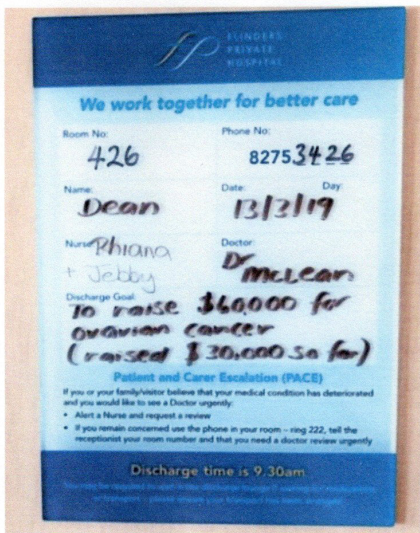 FLINDERS
PRIVATE
HOSPITAL
We work together for better care
Room No: Phone No:
426 8275 3426
Name: Date: Day:
Dean 13/3/19
Nurse: Rhiana Doctor:
+ Jebby Dr McLean
Discharge Goal:
To raise $60,000 for
ovarian cancer
(raised $30,000 so far)
Patient and Carer Escalation (PACE)
If you or your family/visitor believe that your medical condition has deteriorated
and you would like to see a Doctor urgently:
• Alert a Nurse and request a review
• If you remain concerned use the phone in your room – ring 222, tell the
receptionist your room number and that you need a doctor review urgently
Discharge time is 9.30am